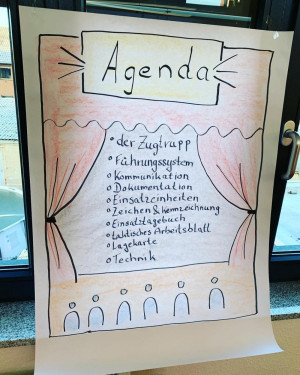 Agenda
• der Zugtrupp
• Führungssystem
• Kommunikation
• Dokumentation
• Einsatzeinheiten
• Zeichen & Kennzeichnung
• Einsatztagebuch
• taktisches Arbeitsblatt
• Lagekarte
• Technik